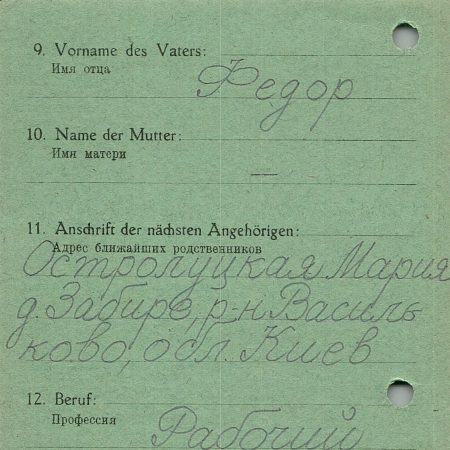 9. Vorname des Vaters:
Имя отца
Федор
10. Name der Mutter:
Имя матери
—
11. Anschrift der nächsten Angehörigen:
Адрес ближайших родственников
Остролуцкая Мария
д. Забирє, р-н Василь
ково, обл. Киев
12. Beruf:
Профессия
Рабочий